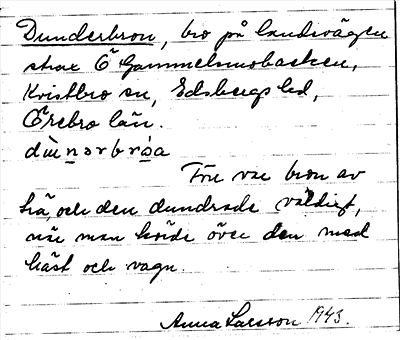 Dunderbron, bro på landsvägen
strax Ö Gammelsmobacken,
Kvistbro sn, Edsbergs hd,
Örebro län.
dùnərbróa
Förr var bron av
trä, och den dundrade väldigt,
när man körde över den med
häst och vagn.
Anna Larsson 1943.